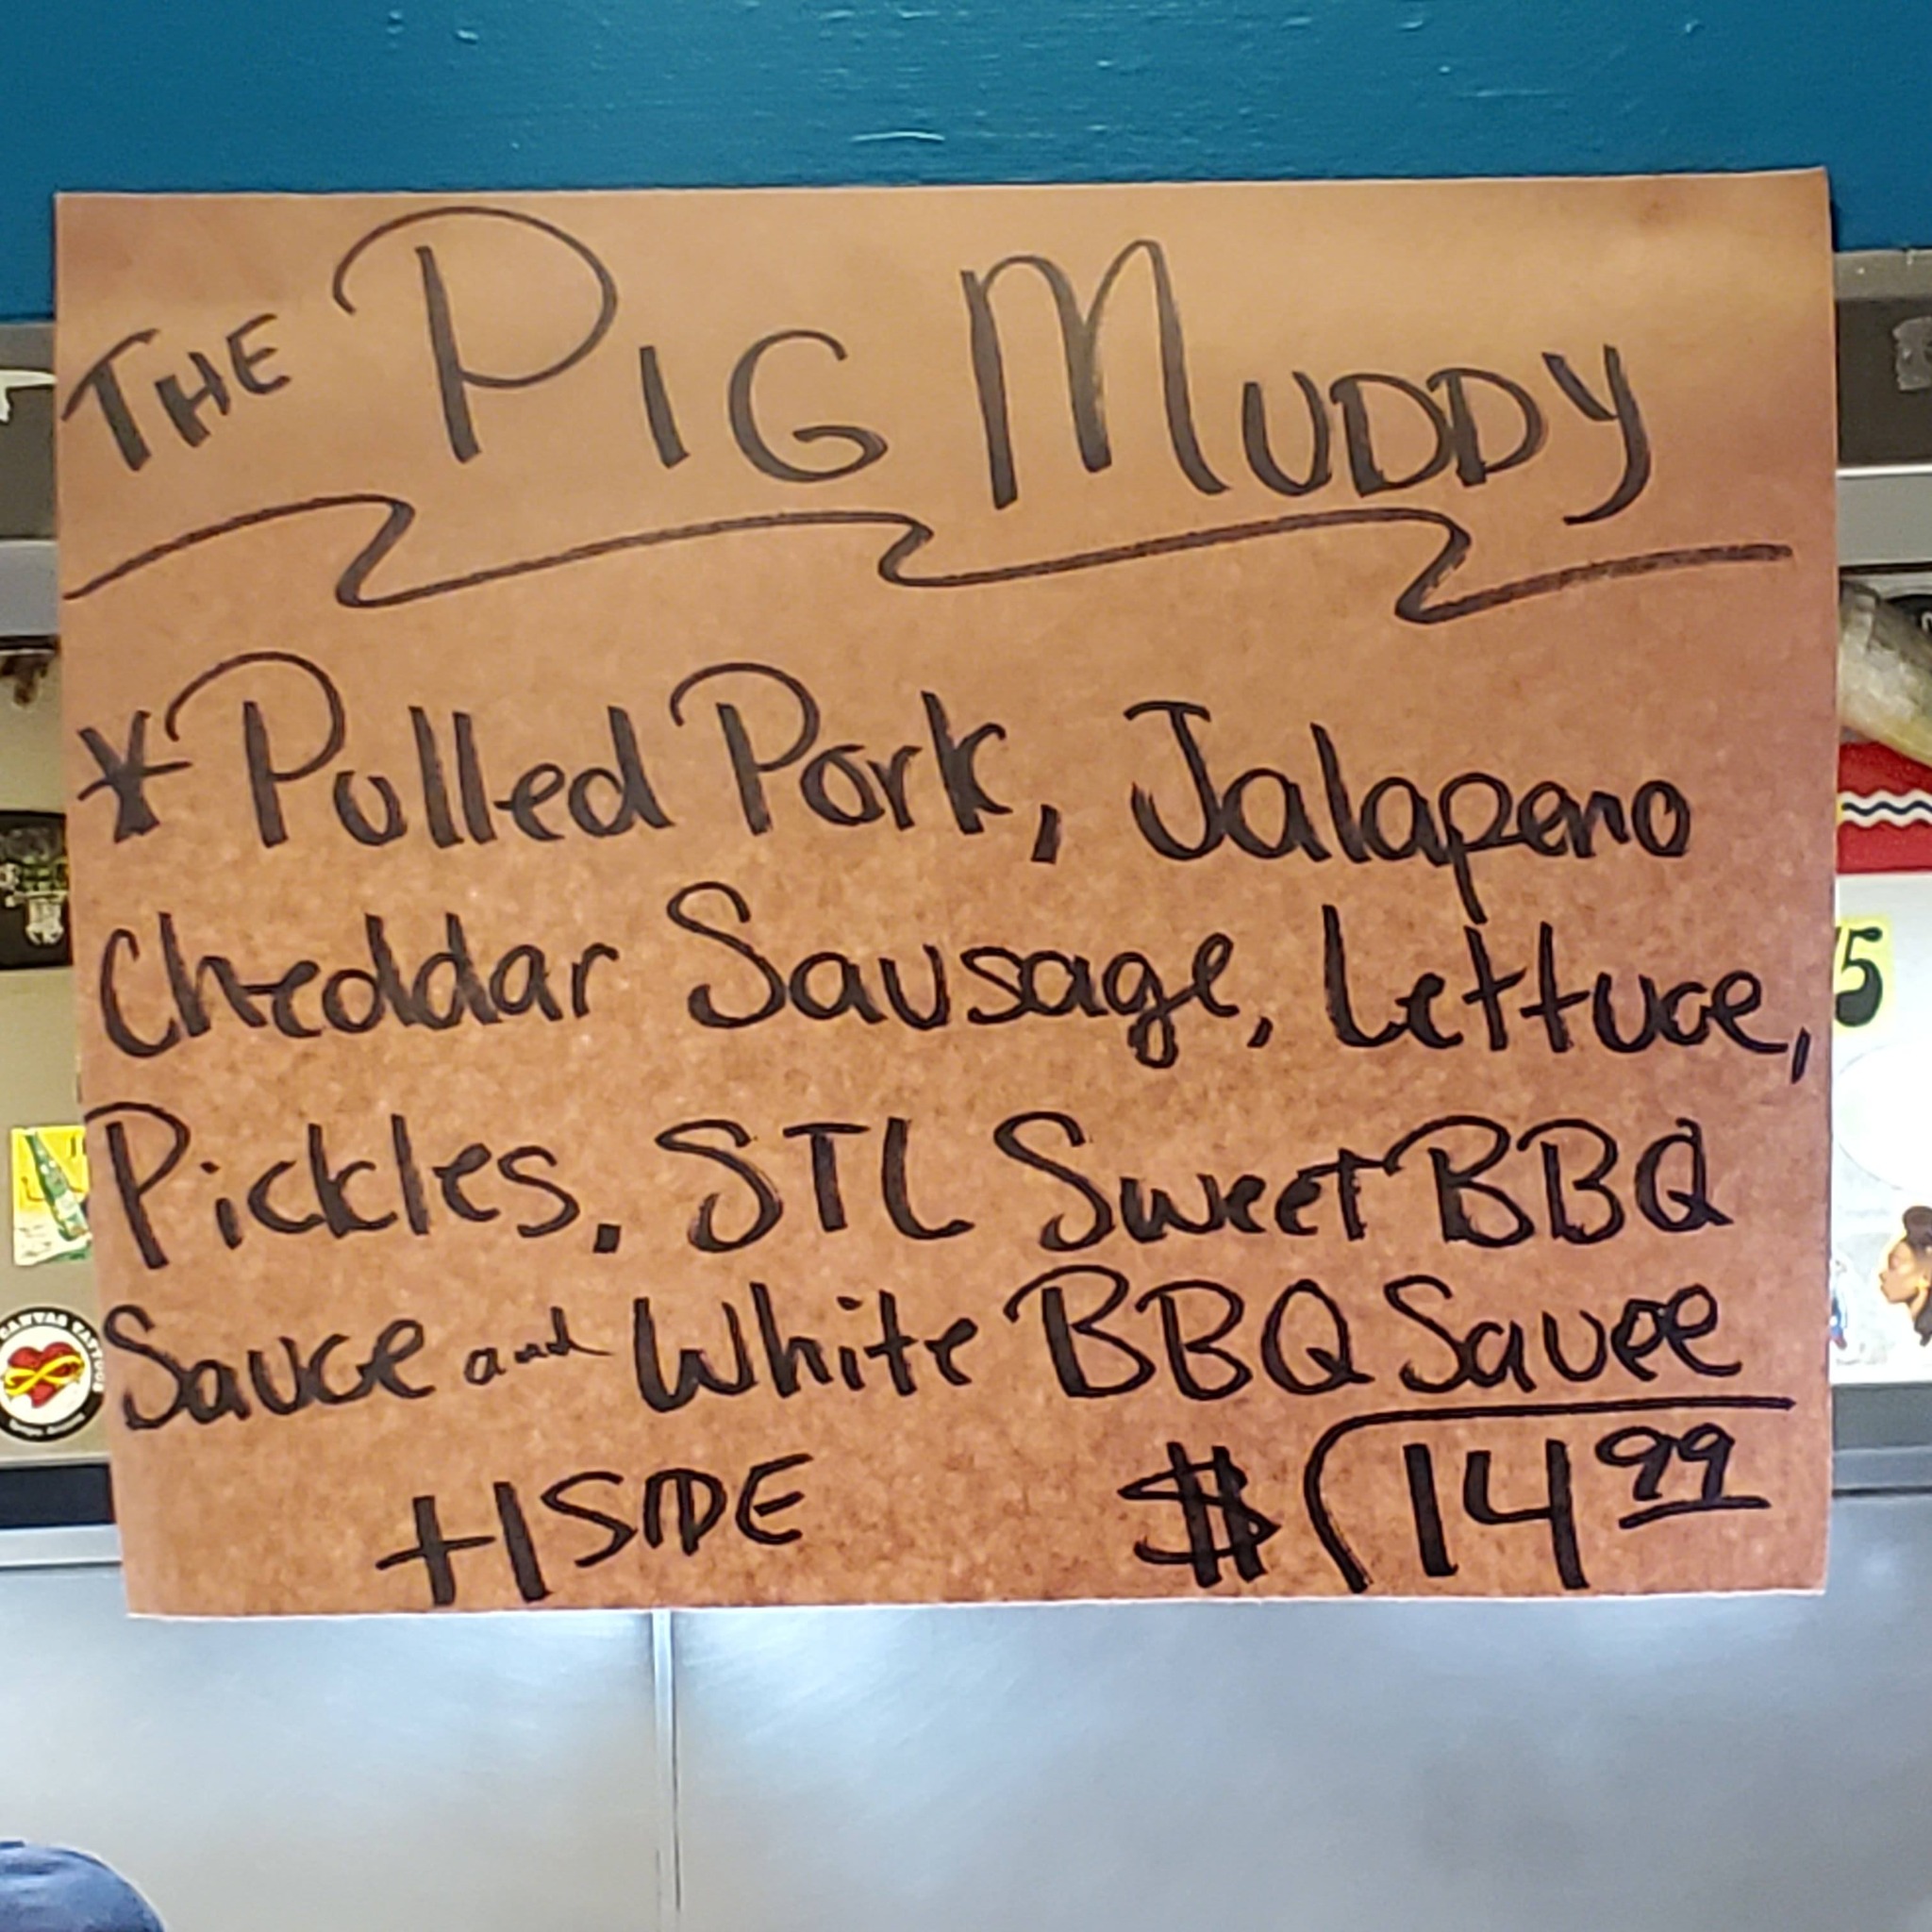 THE PIG MUDDY
* Pulled Pork, Jalapeno
Cheddar Sausage, Lettuce,
Pickles, STL Sweet BBQ
Sauce and White BBQ Sauce
+1 SIDE $14.99
15